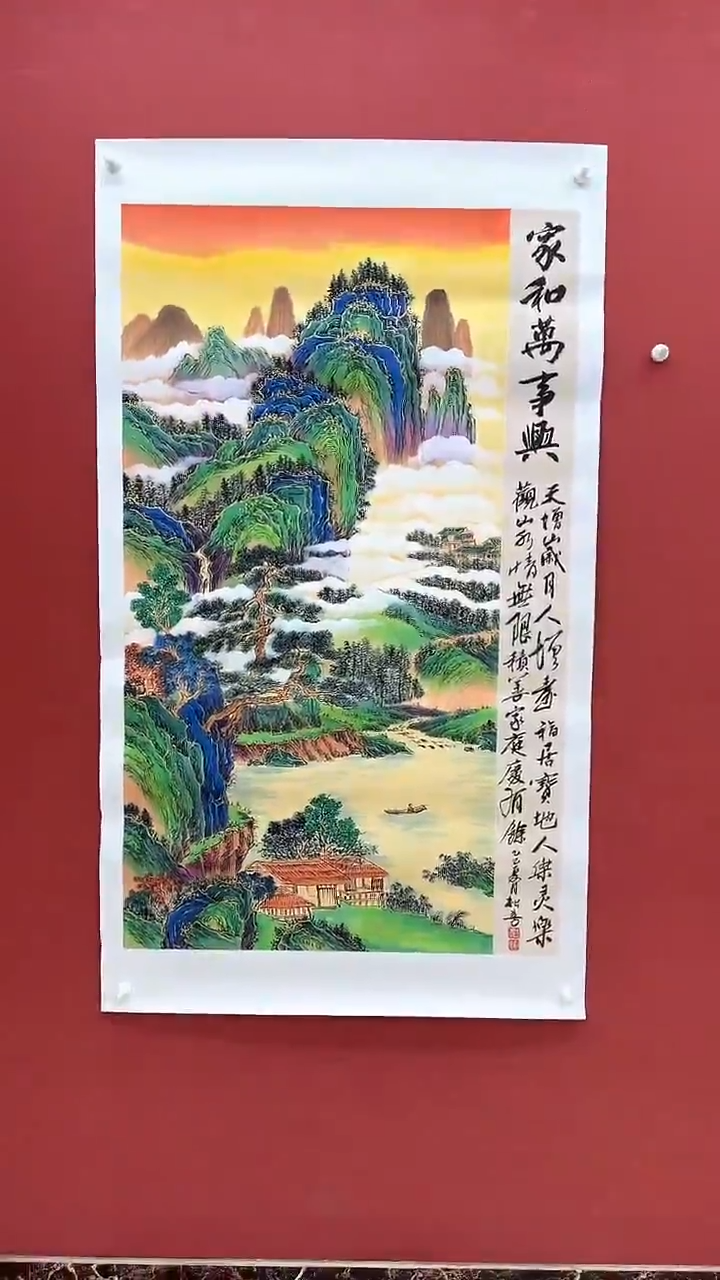 家和萬事興
天增歲月人增壽福居寶地人樂
觀山水情無限積善家庭慶有餘
乙巳夏月